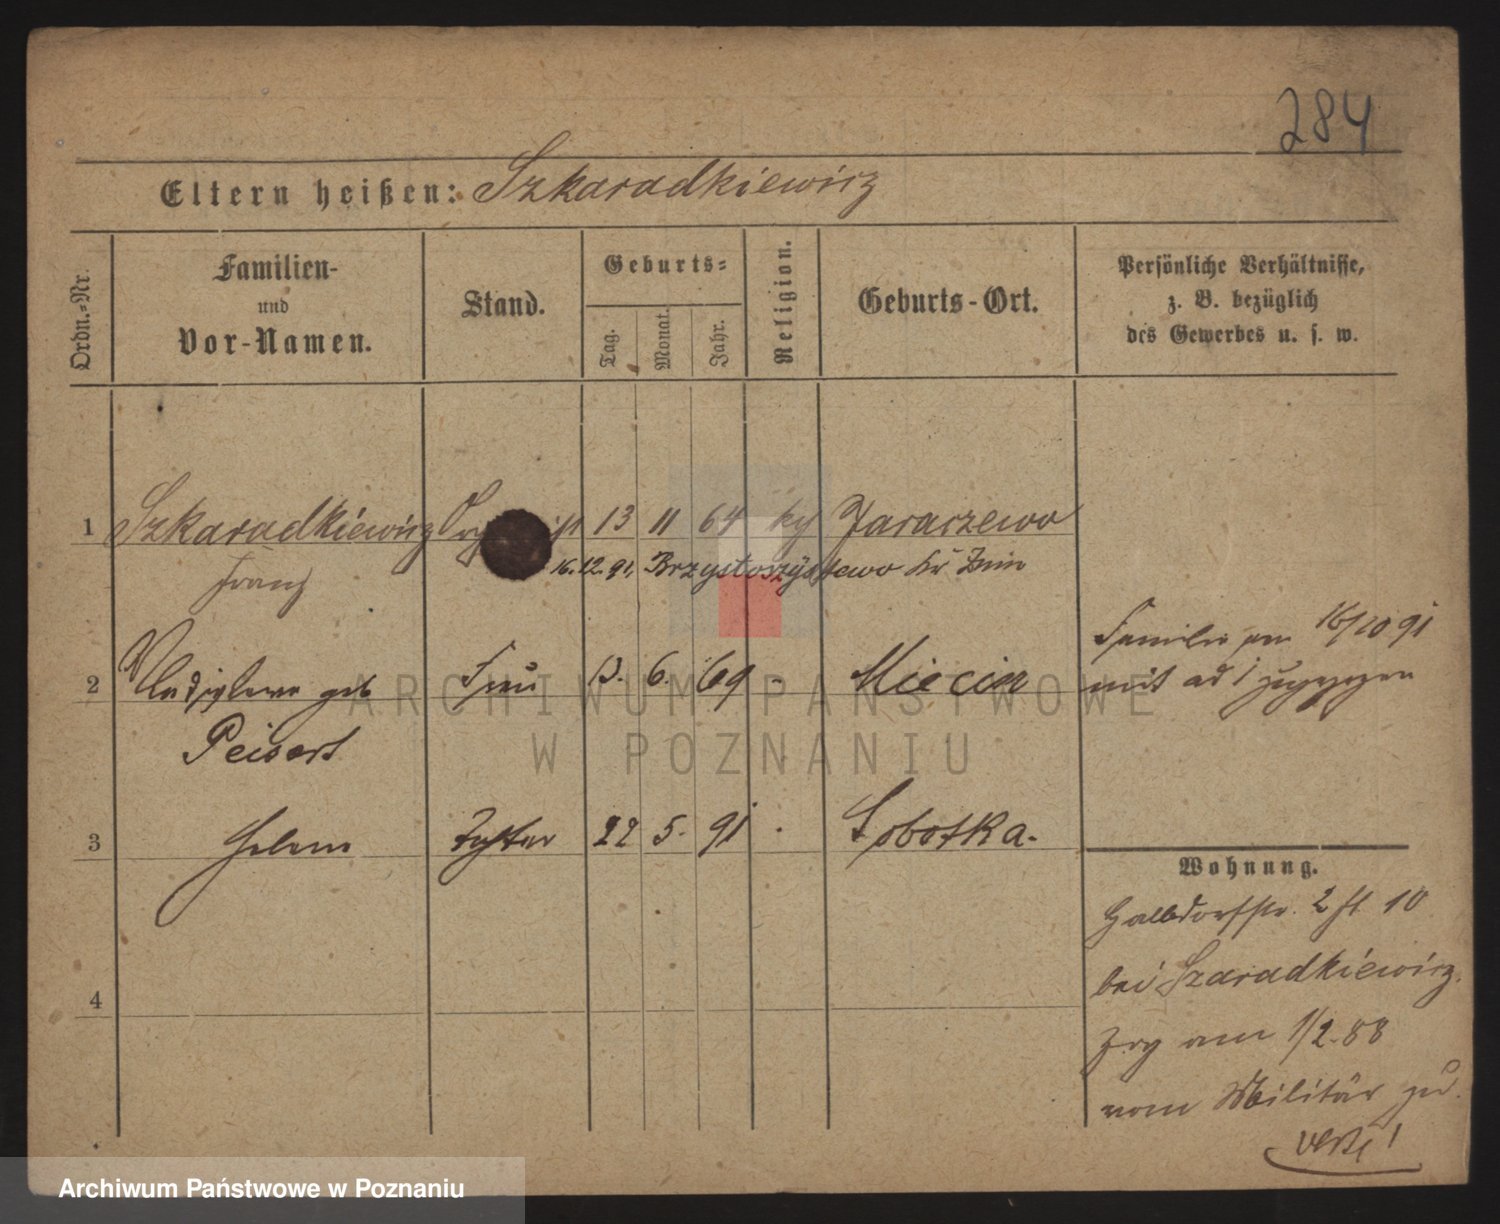 284
Eltern heißen: Szkaradkiewicz
Ordn.-Nr.
Familien-
und
Vor-Namen.
Stand.
Geburts-
Tag.
Monat.
Jahr.
Religion.
Geburts-Ort.
Persönliche Verhältnisse,
z. B. bezüglich
des Gewerbes u. s. w.
1 Szkaradkiewicz 13 11 64 Jaraczewo
Franz
16.12.91, Brzystoszystewo Kr Znin
Familie am 16/10 91
2 Wladislawa geb Frau 13. 6. 69 - Miecin
mit ad 1 zugezogen
Peisert
3 Helene Tochter 22 5. 91 Sobotka.
4
Wohnung.
Halbdorfstr. 2 10
bei Szaradkiewicz.
Zog am 1/2.88
vom Militär zu.
ARCHIWUM PAŃSTWOWE
W POZNANIU
Archiwum Państwowe w Poznaniu